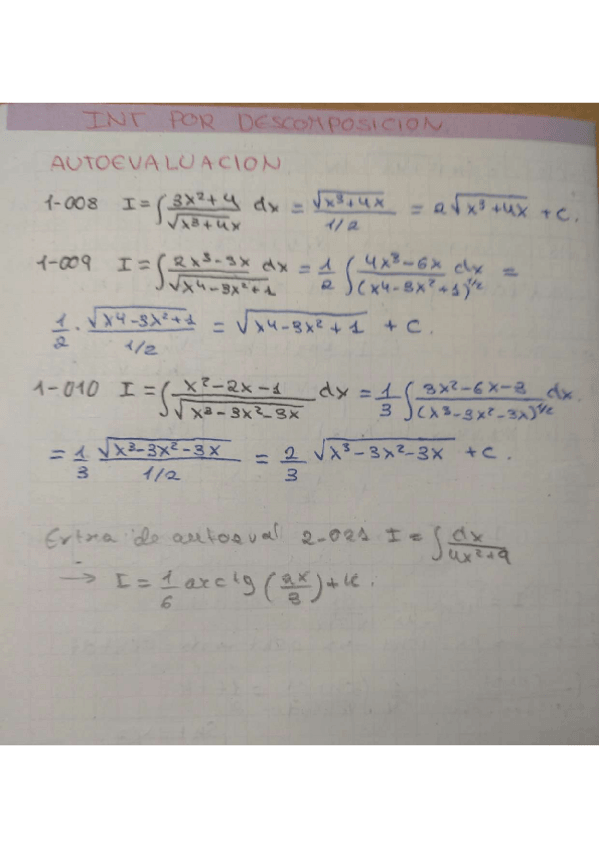 INT POR DESCOMPOSICION
AUTOEVALUACION
1-008 I = ∫ (3x²+4)/√(x³+4x) dx = √(x³+4x)/(1/2) = 2√(x³+4x) + C.
1-009 I = ∫ (2x³-3x)/√(x4-3x²+1) dx = 1/2 ∫ (4x³-6x)/(x4-3x²+1)^(1/2) dx =
1/2 · √(x4-3x²+1)/(1/2) = √(x4-3x²+1) + C.
1-010 I = ∫ (x²-2x-1)/√(x³-3x²-3x) dx = 1/3 ∫ (3x²-6x-3)/(x³-3x²-3x)^(1/2) dx.
= 1/3 √(x³-3x²-3x)/(1/2) = 2/3 √(x³-3x²-3x) + C.
de autoeval 2-021 I = ∫ dx/(4x²+9)
→ I = 1/6 arc tg (2x/3) + K.